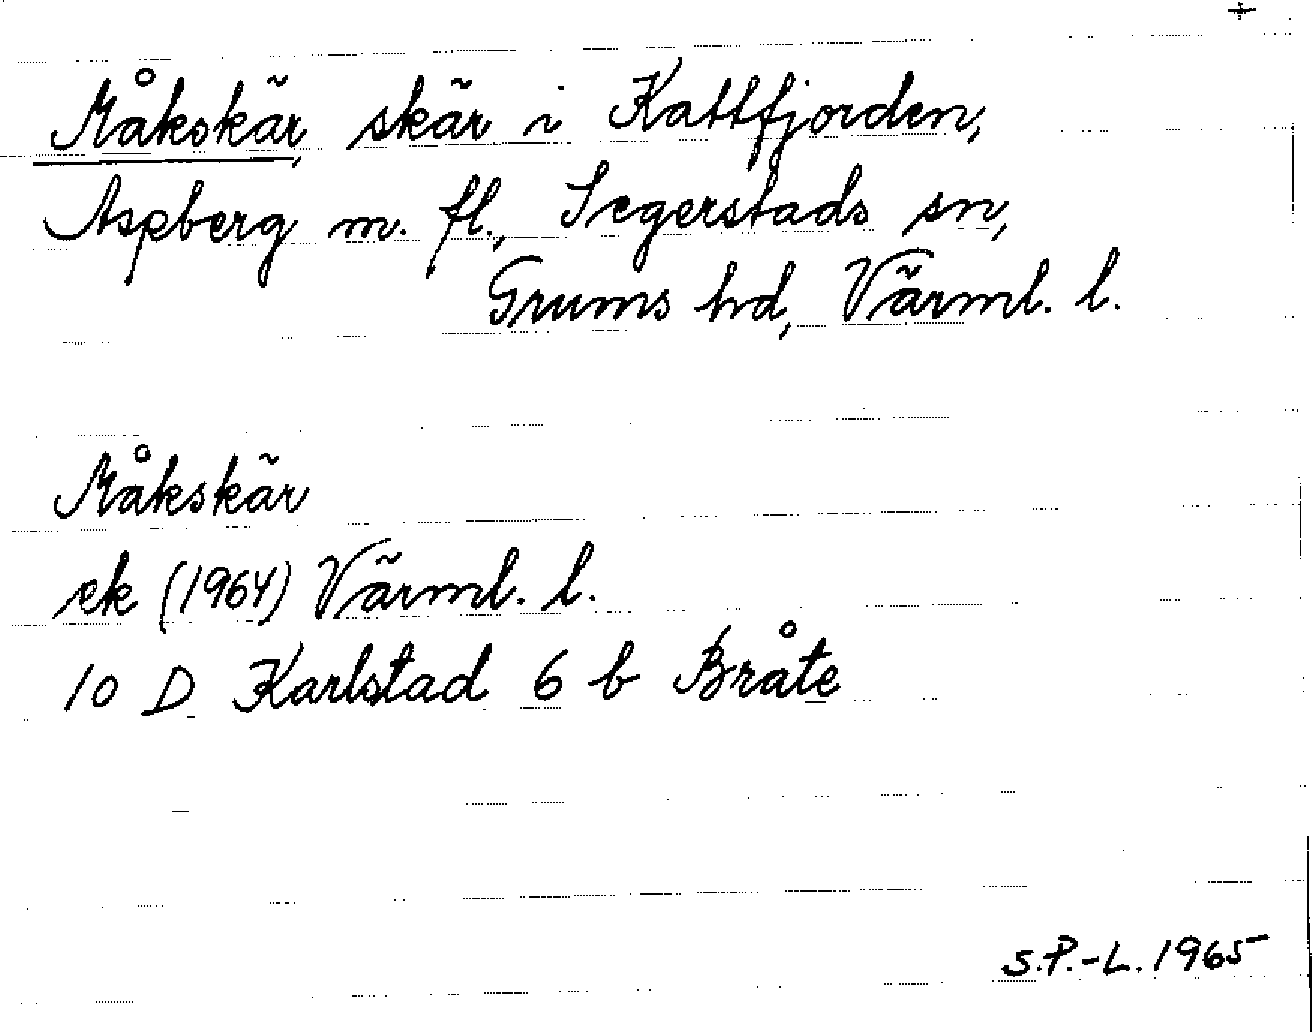 +
Måkskär, skär i Kattfjorden,
Aspberg m. fl., Segerstads sn,
Grums hd, Värml. l.
Måkskär
ek (1964) Värml. l.
10 D Karlstad 6 b Bråte
S.P.-L. 1965